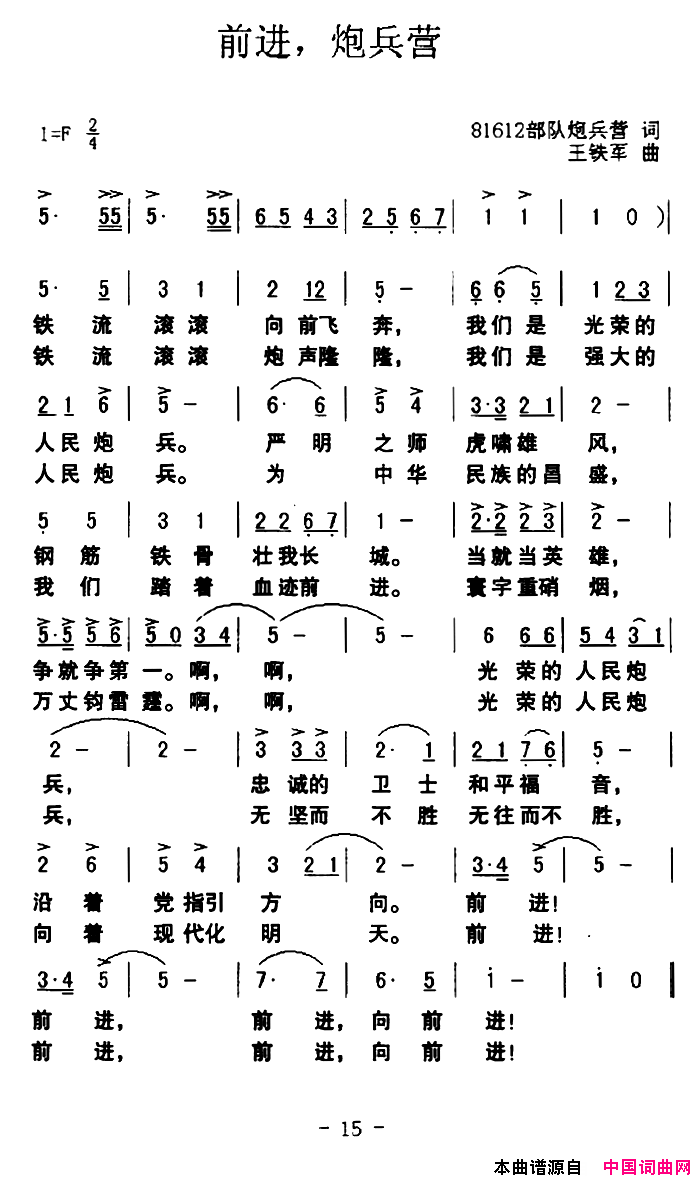 前进，炮兵营
1=F 2/4
81612部队炮兵营 词
王铁军 曲
5· 55 | 5· 55 | 6543 | 2567 | 1 1 | 1 0 )
5· 5 | 3 1 | 2 12 | 5 - | 6 6 5 | 1 23
铁 流 滚 滚 向 前飞 奔， 我们 是 光 荣的
铁 流 滚 滚 炮 声隆 隆， 我们 是 强 大的
21 6 | 5 - | 6· 6 | 5 4 | 3·3 21 | 2 -
人民 炮 兵。 严 明 之 师 虎啸雄 风，
人民 炮 兵。 为 中 华 民族的昌 盛，
5 5 | 3 1 | 2267 | 1 - | 2·2 23 | 2 -
钢 筋 铁 骨 壮我长 城。 当就当英 雄，
我 们 踏 着 血迹前 进。 寰宇重硝 烟，
5·5 56 | 50 34 | 5 - | 5 - | 6 66 | 54 31
争就争第 一。啊， 啊， 光 荣的 人民炮
万丈钧雷 霆。啊， 啊， 光 荣的 人民炮
2 - | 2 - | 3 33 | 2· 1 | 2176 | 5 -
兵， 忠 诚的 卫 士 和平福 音，
兵， 无 坚而 不 胜 无往而不 胜，
2 6 | 5 4 | 3 21 | 2 - | 3·4 5 | 5 -
沿 着 党 指引 方 向。 前 进！
向 着 现 代化 明 天。 前 进！
3·4 5 | 5 - | 7· 7 | 6· 5 | 1 - | 1 0
前 进， 前 进，向 前 进！
前 进， 前 进，向 前 进！
- 15 -
本曲谱源自 中国词曲网